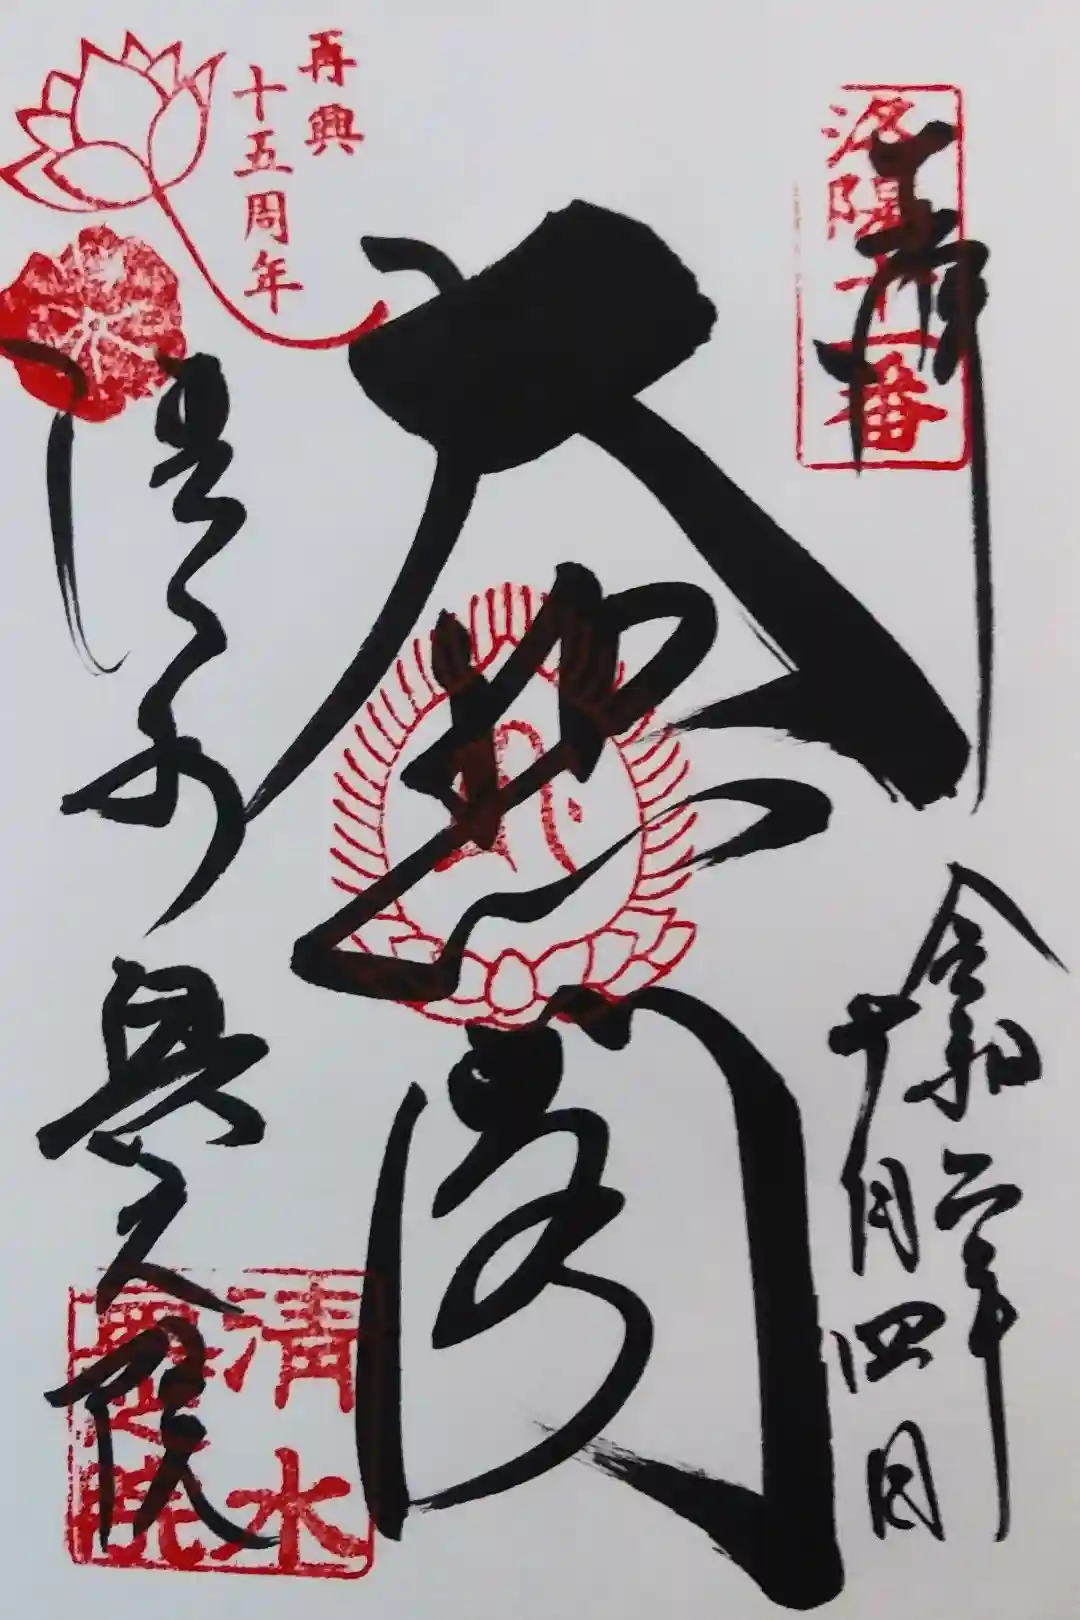 奉拝
洛陽十一番
令和二年
十月四日
大悲閣
再興
十五周年
清水寺
奥之院
清水
奥之院